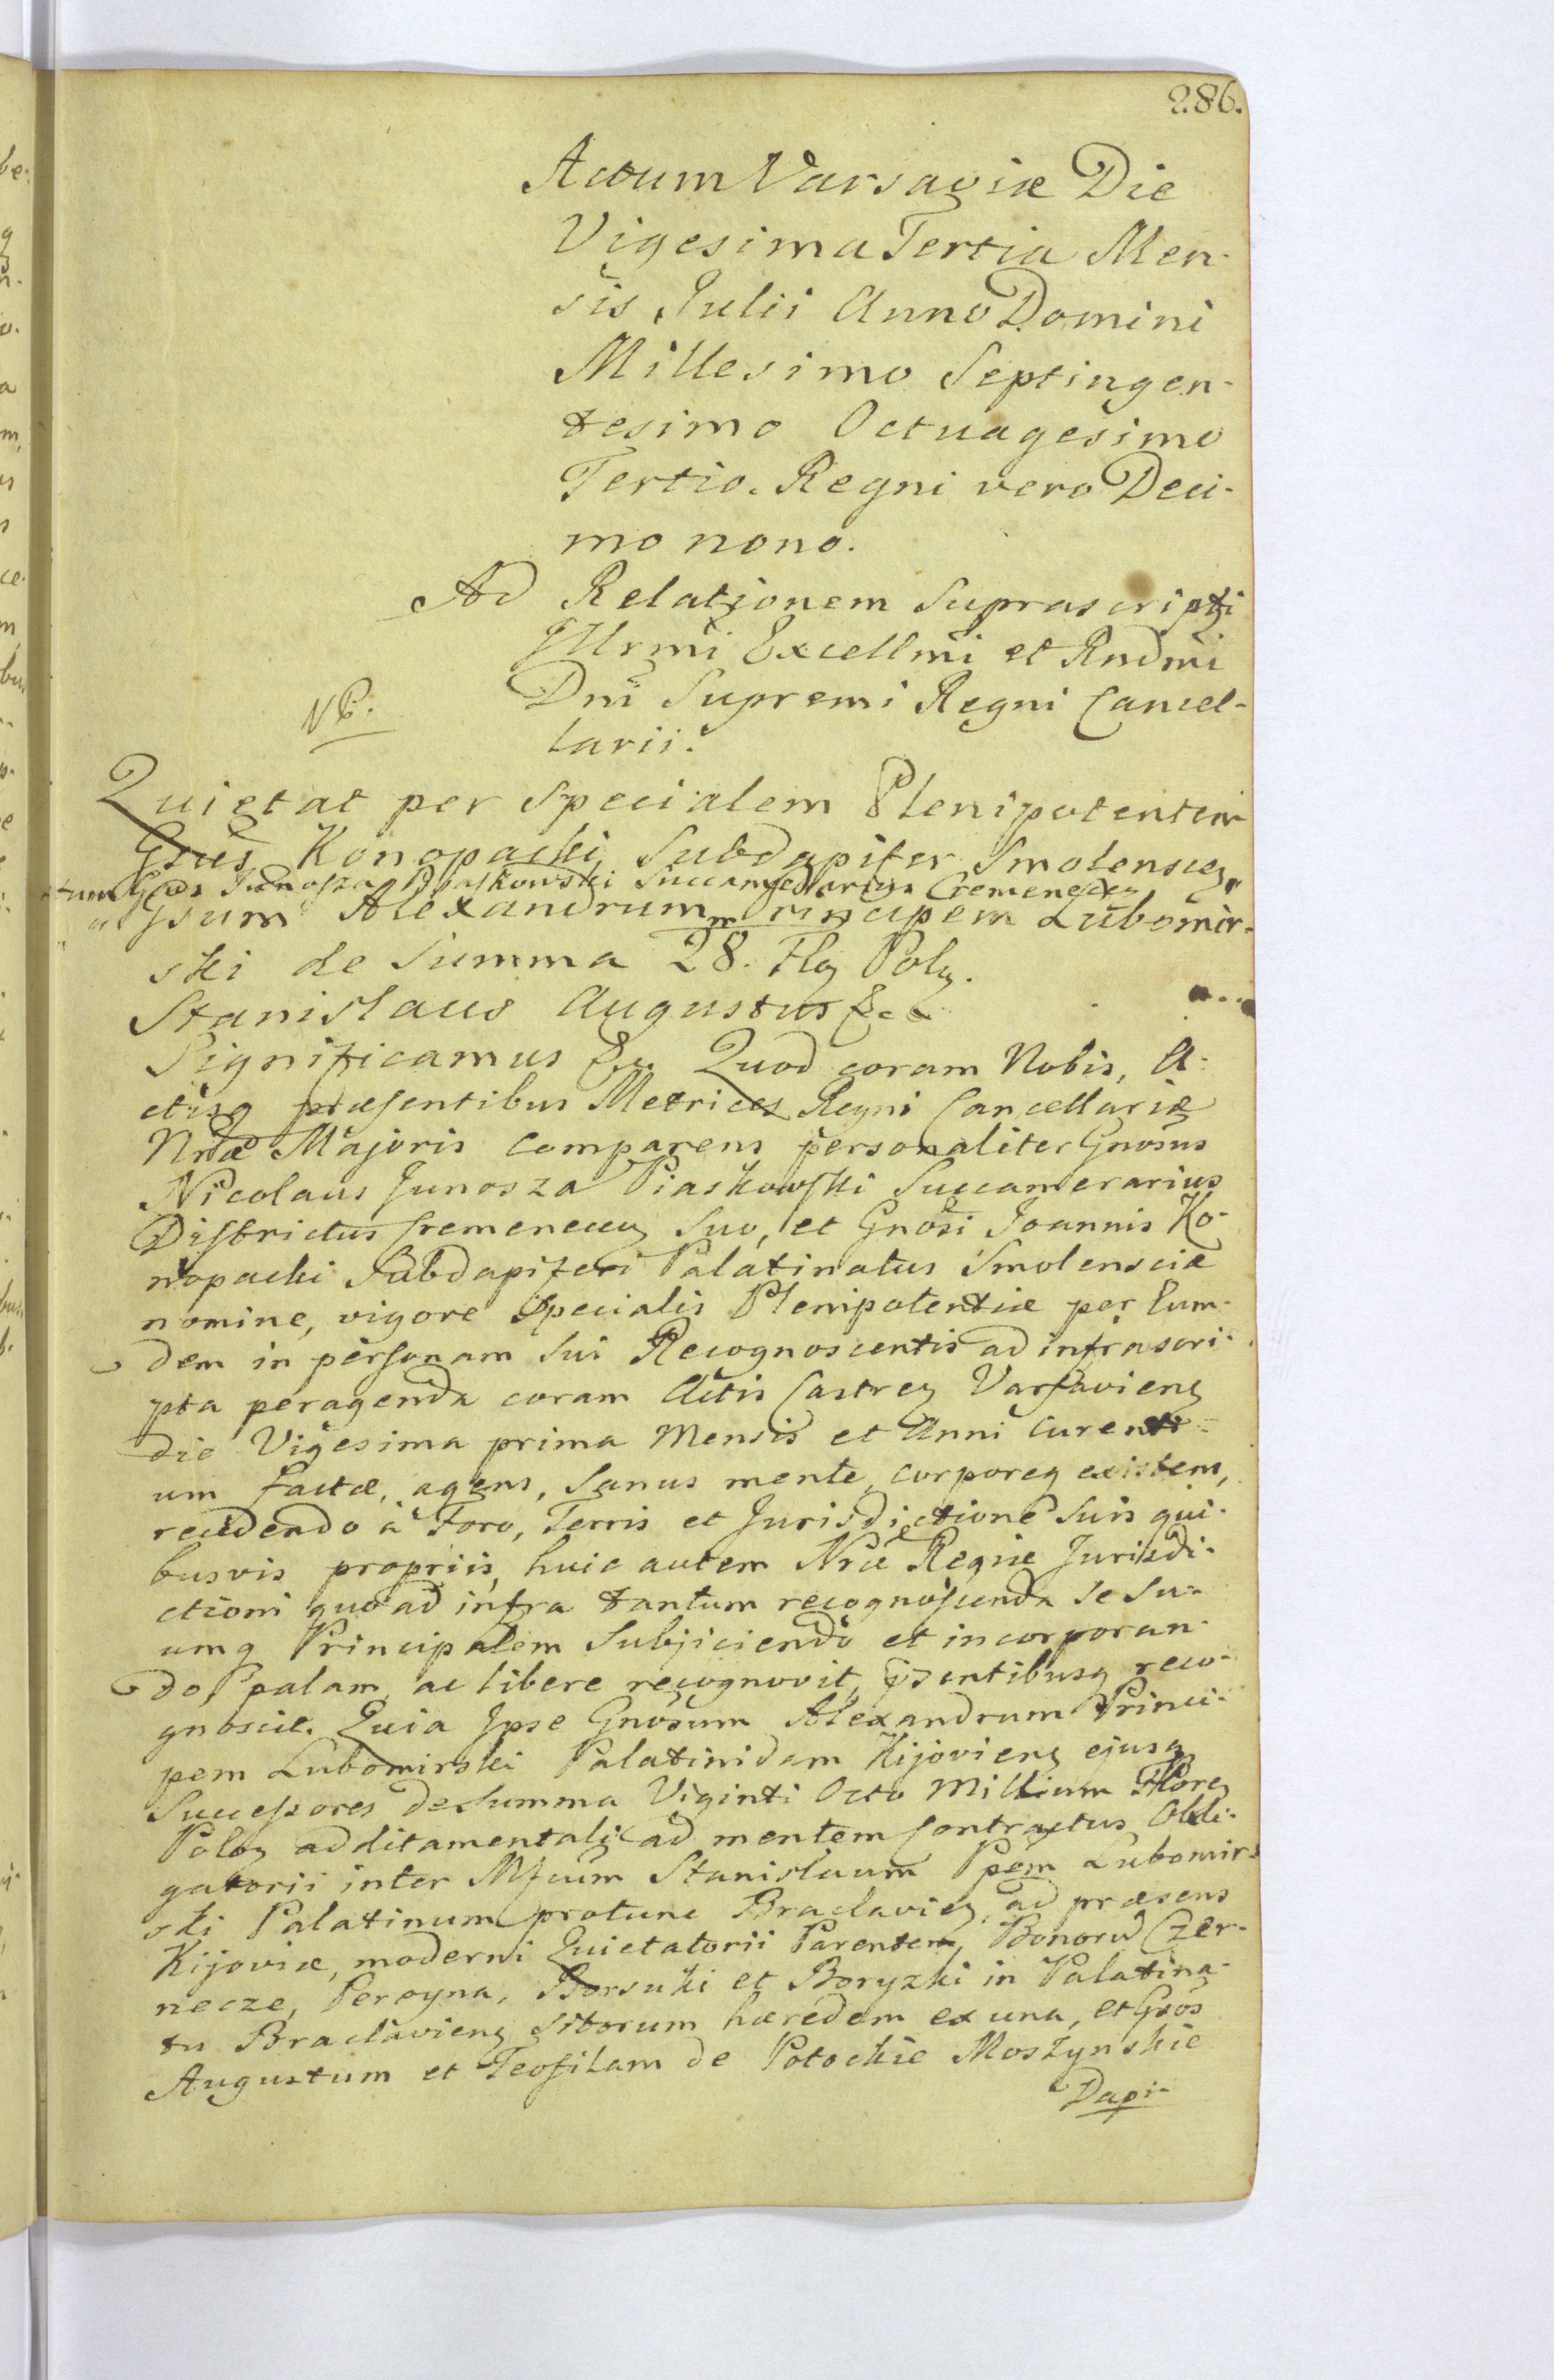 286.
Actum Varsaviæ Die
Vigesima Tertia Men-
sis Julii Anno Domini
Millesimo Septingen-
tesimo Octuagesimo
Tertio. Regni vero Deci-
mo nono.
Ad Relationem Suprascripti
Illrmi Excellmi et Rndmi
Dni Supremi Regni Cancel-
larii.
NB.
Quietat per Specialem Plenipotentem
Gsus Konopacki Subdapifer Smolenscien
Gsus Junosza Piaskowski Succamerarius Cremenecen
Gsum Alexandrum Principem Lubomir-
ski de Summa 28. m Flg Polg.
Stanislaus Augustus &c
Significamus &c. Quod coram Nobis, A-
ctisq præsentibus Metrices Regni Cancellariæ
Nræ Majoris comparens personaliter Gnosus
Nicolaus Junosza Piaskowski Succamerarius
Districtus Cremenecen Suo, et Gnosi Joannis Ko-
nopacki Subdapiferi Palatinatus Smolensciæ
nomine, vigore Specialis Plenipotentiæ per Eum-
dem in personam Sui Recognoscentis ad infrascri-
pta peragenda coram Actis Castren Varsavien
die Vigesima prima Mensis et Anni Curenti-
um factæ, agens, Sanus mente, corporeq existens,
recedendo à Foro, Terris et Jurisdictione Suis qui-
busvis propriis, huic autem Nræ Regiæ Jurisdi-
ctioni quo ad infra tantum recognoscenda Se Su-
umq Principalem Subjiciendo et incorporan-
do, palam ac libere recognovit, psentibusq reco-
gnoscit. Quia Ipse Gnosum Alexandrum Princi-
pem Lubomirski Palatinidam Kijovien ejusq
Successores de Summa Viginti Octo Millium Floren
Polon additamentali ad mentem Contractus Obli-
gatorii inter Mfcum Stanislaum Ppem Lubomir-
ski Palatinum protunc Braclavien, ad præsens
Kijoviæ, moderni Quietatorii Parentem, Bonorum Czer-
necze, Peroyna, Borsuki et Boryzki in Palatina-
tu Braclavien sitorum hæredem ex una, et Gsos
Augustum et Teofilam de Potockie Moszynskie
Dapi-